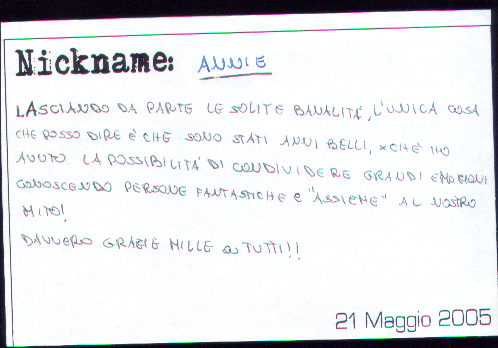 Nickname: ANNIE
LASCIANDO DA PARTE LE SOLITE BANALITA', L'UNICA COSA
CHE POSSO DIRE è CHE SONO STATI ANNI BELLI, xCHè HO
AVUTO LA POSSIBILITA' DI CONDIVIDERE GRANDI EMOZIONI
CONOSCENDO PERSONE FANTASTICHE e "ASSIEME" AL NOSTRO
MITO!
DAVVERO GRAZIE MILLE a TUTTI!!
21 Maggio 2005